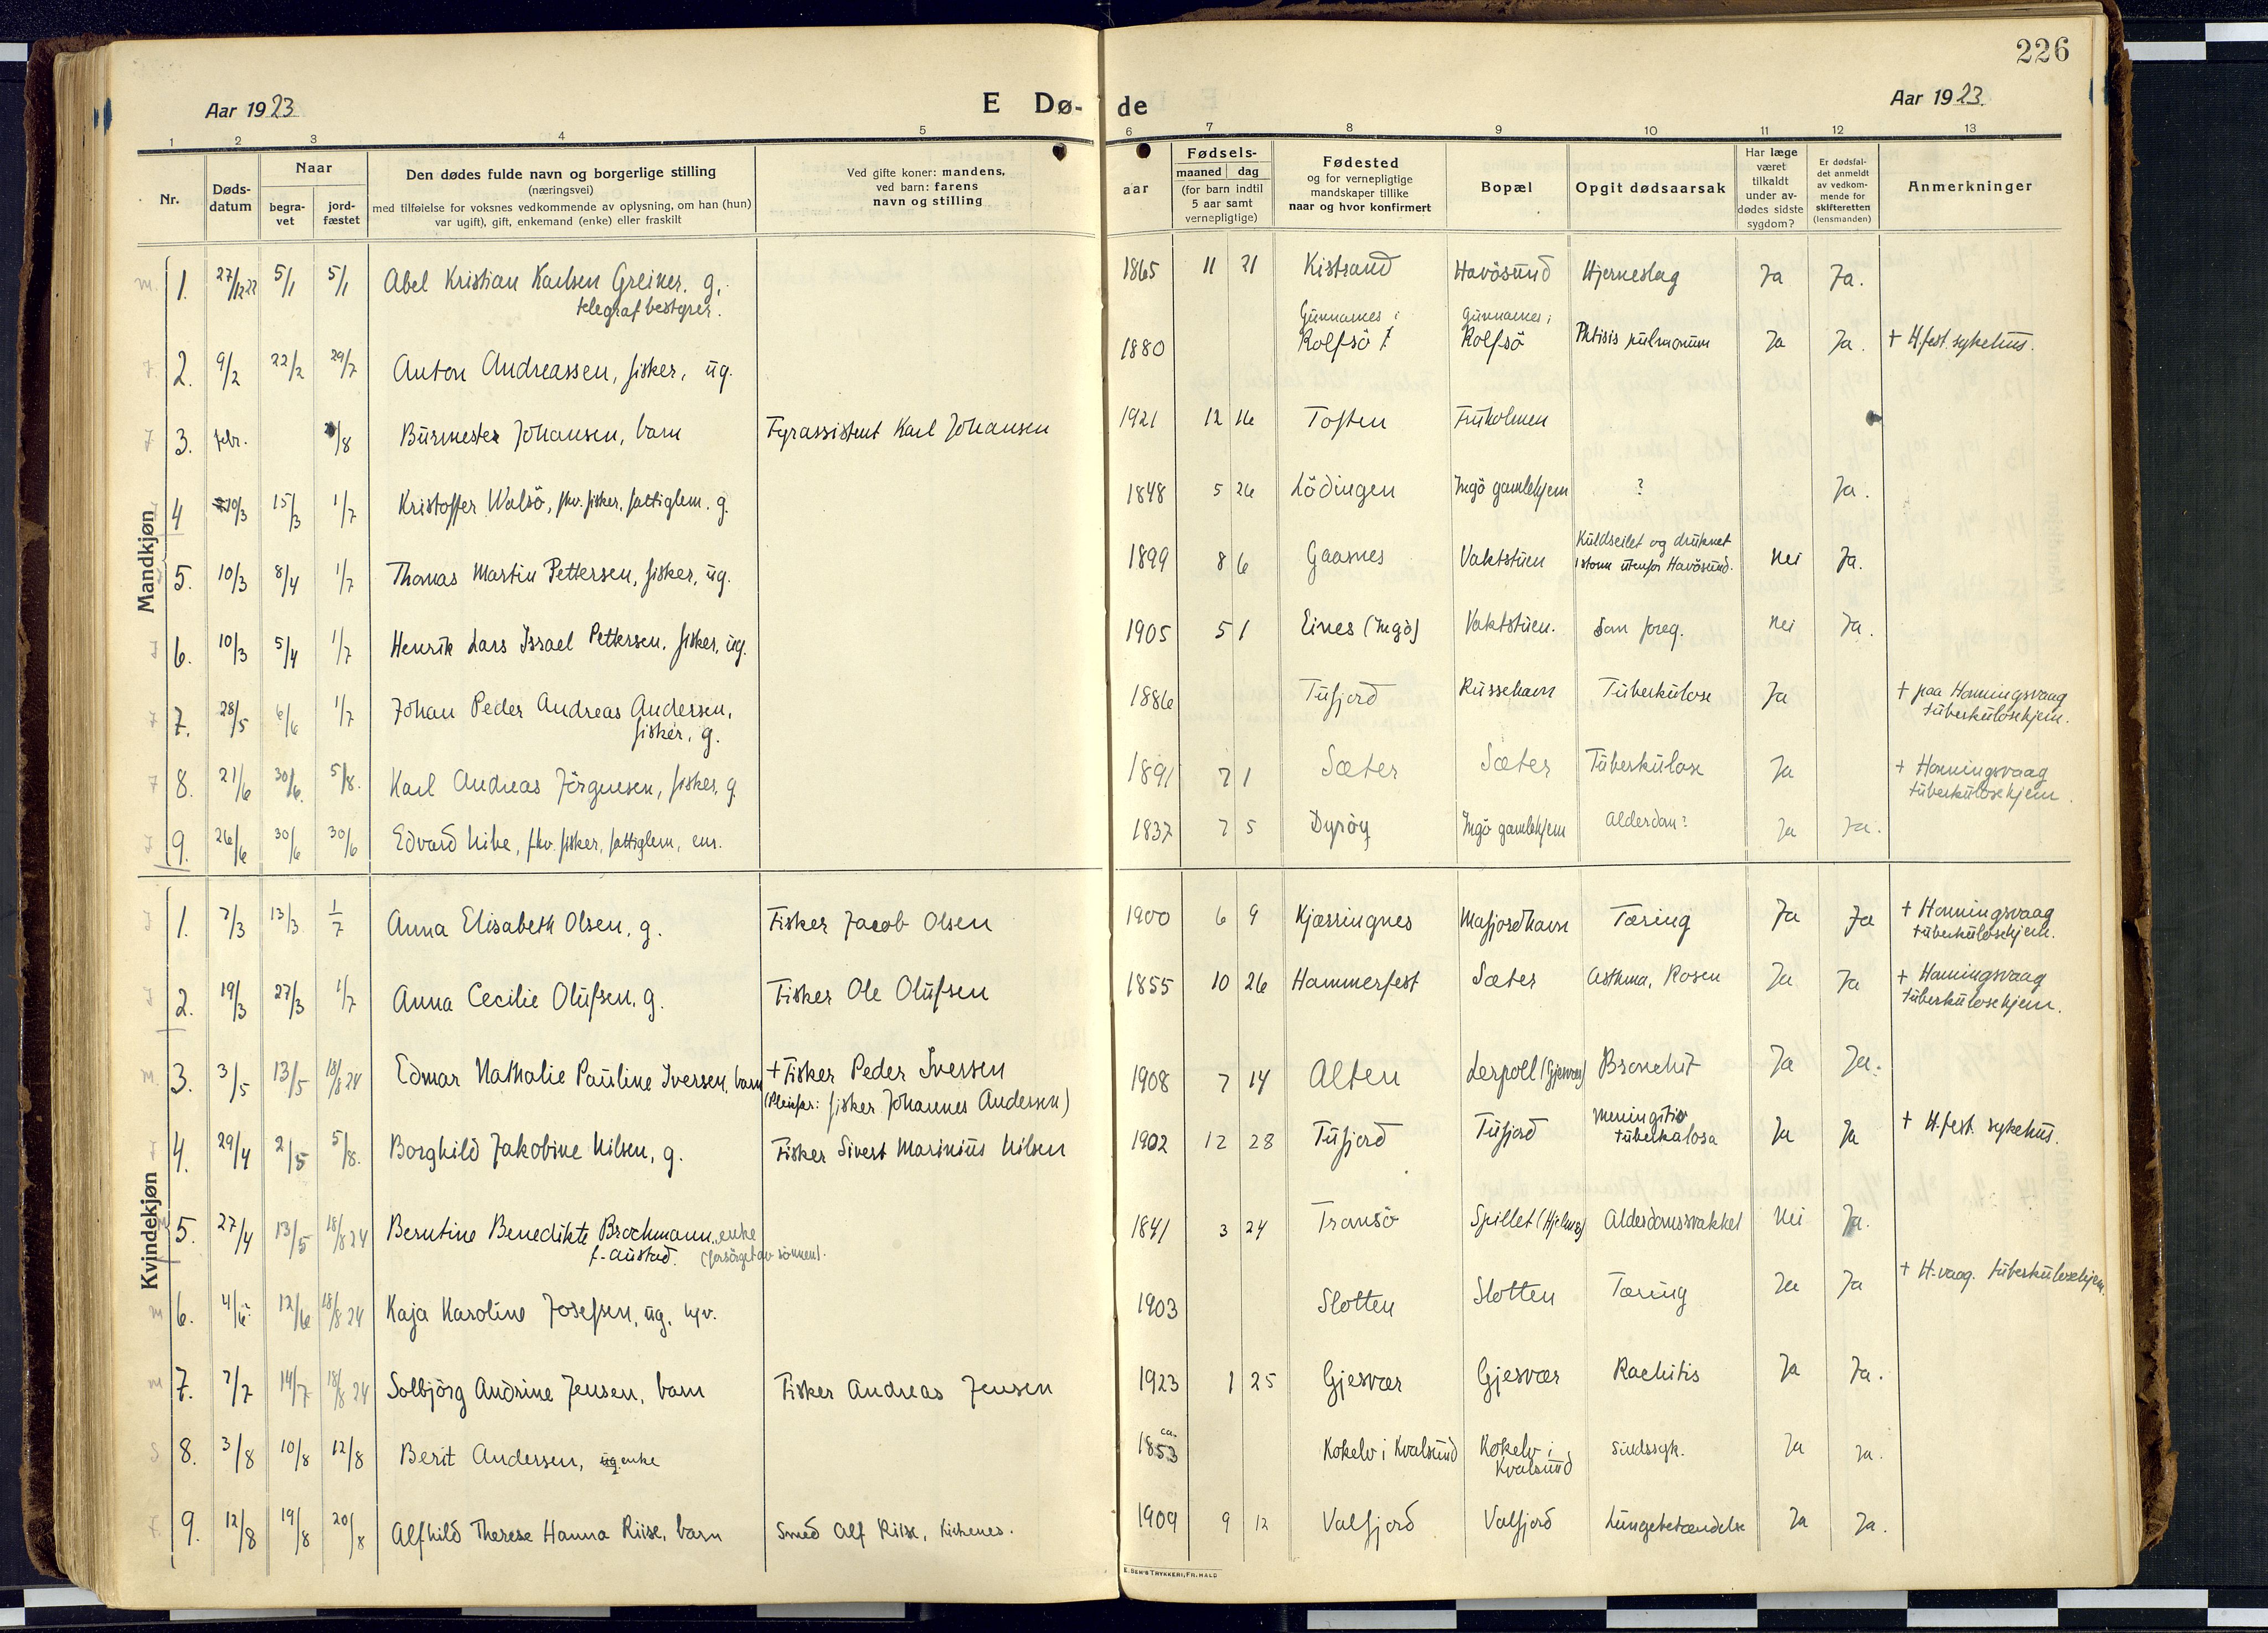 226
Aar 1923
E Dø-
de
Aar 1923.
1 2 3 4 5 6 7 8 9 10 11 12 13
Nr.
Døds-
datum
Naar
begra-
vet
jord-
fæstet
Den dødes fulde navn og borgerlige stilling
(næringsvei)
med tilføielse for voksnes vedkommende av oplysning, om han (hun)
var ugift), gift, enkemand (enke) eller fraskilt
Ved gifte koner: mandens,
ved barn: farens
navn og stilling
Fødsels-
aar
maaned dag
(for barn indtil
5 aar samt
vernepligtige)
Fødested
og for vernepligtige
mandskaper tillike
naar og hvor konfirmert
Bopæl
Opgit dødsaarsak
Har læge
været
tilkaldt
under av-
dødes sidste
sygdom?
Er dødsfal-
det anmeldt
av vedkom-
mende for
skifteretten
(lensmanden)
Anmerkninger
Mandkjøn
m. 1. 27/12 22 5/1 5/1 Abel Kristian Karlsen Greiner, g. 1865 11 21 Kistrand Havösund Hjerneslag Ja Ja.
telegrafbestyrer.
Gunnarnes i Gunnarnes i
2. 9/2 22/2 29/7 Anton Andreassen, fisker, ug. 1880 Rolfsö Rolfsö Phtisis pulmonum Ja Ja. + H.fest. sykehus.
3. febr. /8 Burmester Johansen, barn Fyrassistent Karl Johansen 1921 12 16 Toften Fruholmen
4 10/3 15/3 1/7 Kristoffer Walsö, fhv. fisker, fattiglem. g. 1848 5 26 Lödingen Ingö gamlehjem ? Ja.
5. 10/3 8/4 1/7 Thomas Martin Pettersen, fisker, ug. 1899 8 6 Gaasnes Vaktstuen Kuldseilet og druknet Nei Ja.
i storm utenfor Havösund.
6. 10/3 5/4 1/7 Henrik Lars Issael Pettersen, fisker, ug. 1905 5 1 Eines (Ingö) Vaktstuen. Som foreg. Nei Ja.
7. 28/5 6/6 1/7 Johan Peder Andreas Andersen, 1886 Tufjord Russehavn Tuberkulose Ja + paa Honningsvaag
fisker, g. tuberkulosehjem.
8. 21/6 30/6. 5/8. Karl Andreas Jörgensen, fisker, g. 1891 7 1 Sæter Sæter Tuberkulose Ja + Honningsvaag
tuberkulosehjem.
9. 26/6 30/6 30/6 Edvard Nibe, fhv. fisker, fattiglem, em. 1837 7 5 Dyröy Ingö gamlehjem Alderdom? Ja Ja.
Kvindekjøn
1. 7/3 13/3 1/7 Anna Elisabeth Olsen, g. Fisker Jacob Olsen 1900 6 9 Kjærringnes Mafjordhavn Tæring Ja Ja + Honningsvaag
tuberkulosehjem.
2. 19/3 27/3 1/7 Anna Cecilie Olufsen, g. Fisker Ole Olufsen 1855 10 26 Hammerfest Sæter Asthma, Rosen Ja Ja + Honningsvaag
tuberkulosehjem.
m. 3. 3/5 13/5 18/8 24 Edmar Nathalie Pauline Iversen, barn + Fisker Peder Iversen 1908 7 14 Alten Lerpoll (Gjesvær) Bronchit Ja Ja.
(Pleiefar: fisker Johannes Andersen)
4. 29/4 2/5 5/8. Borghild Jakobine Nilsen, g. Fisker Sivert Marinius Nilsen 1902 12 28 Tufjord Tufjord Meningitis Ja Ja + H.fest. sykehus.
tuberkulosa
m 5. 27/4 13/5 18/8 24 Berntine Benedikte Brochmann, enke 1841 3 24 Tromsö Spillet (Hjelmsö) Alderdomssvakhet Nei Ja.
f. Austad. (forsörget av sönnen).
m 6. 4/6 12/6 18/8 24 Kaja Karoline Josefsen, ug. hjv. 1903 Slotten Slotten Tæring Ja Ja + H-vaag. tuberkulosehjem.
m 7. 7/7 14/7 18/8 24 Solbjörg Andrine Jensen, barn Fisker Andreas Jensen 1923 1 25 Gjesvær Gjesvær Rachitis Ja Ja.
S 8. 3/8 10/8 12/8 Berit Andersen, ug. enke ca. 1853 Kokelv i Kvalsund Kokelv i Kvalsund Ja Ja.
9. 12/8 19/8 20/8 Alfhild Therese Hanna Riise, barn Smed Alf Riise, Kirkenes. 1909 9 12 Valfjord Valfjord Lungebetændelse Ja Ja.
E. SEM'S TRYKKERI, FR.HALD